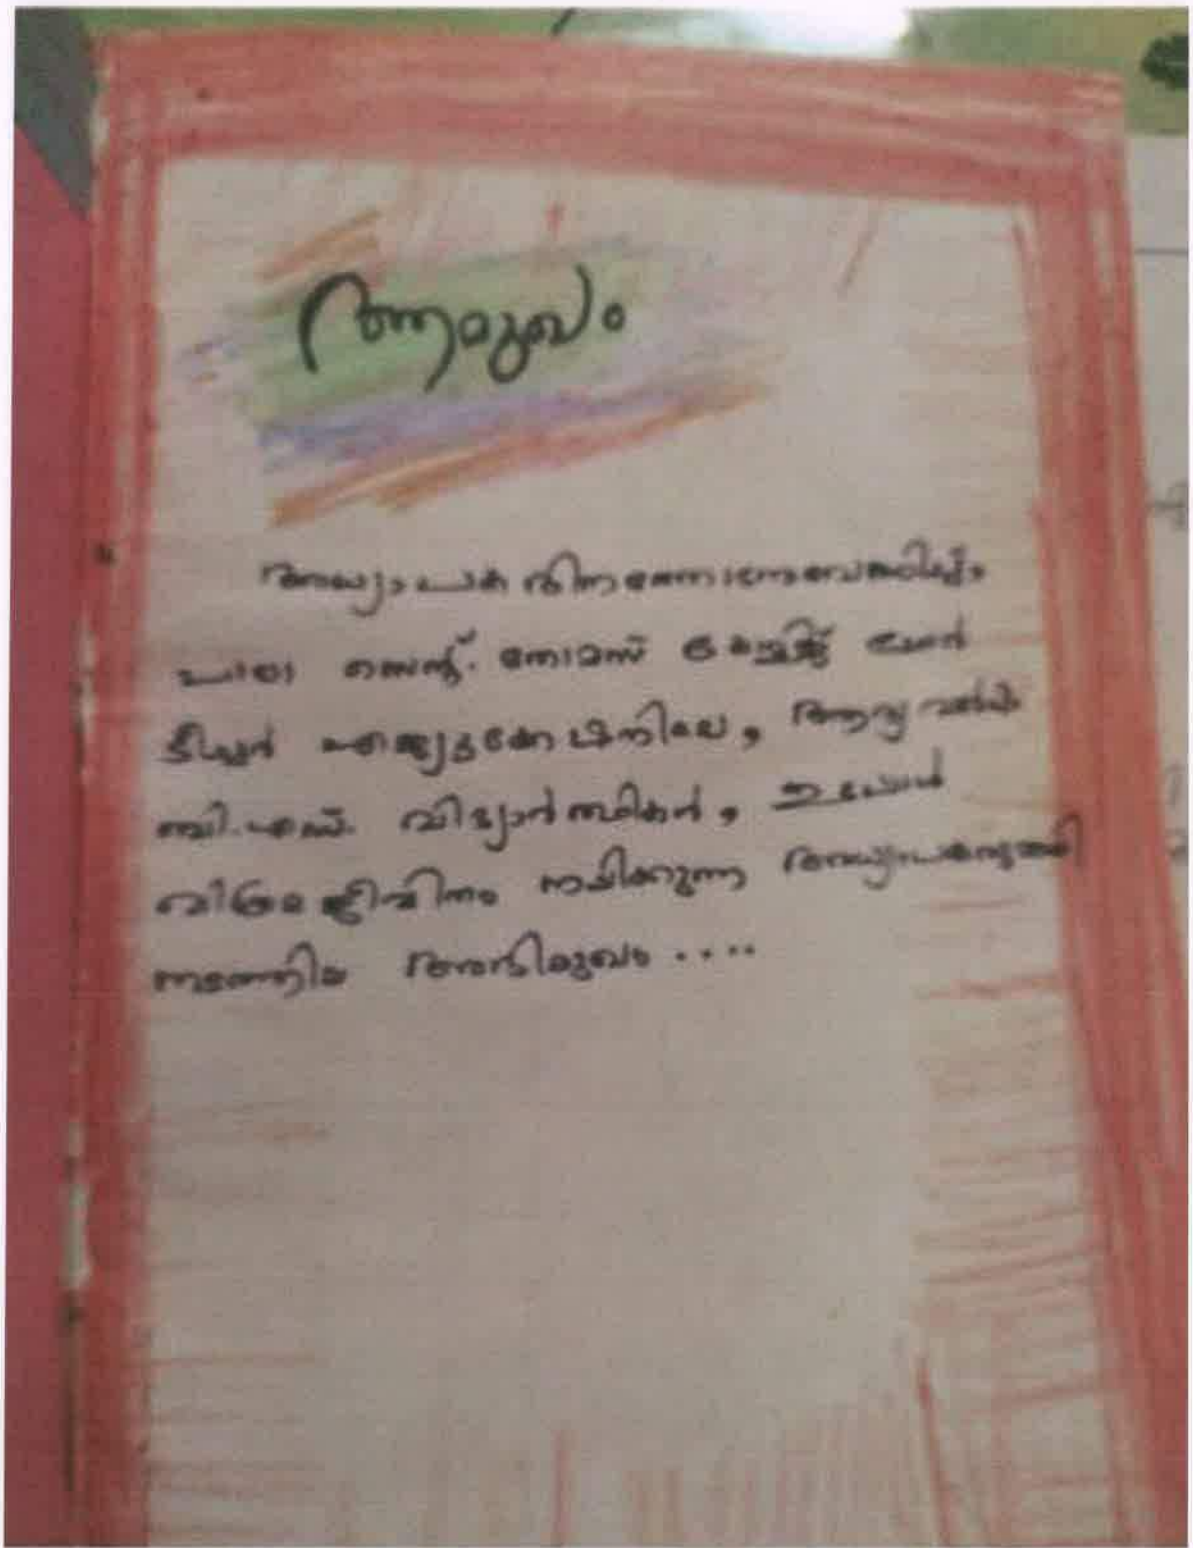 ആമുഖം
അധ്യാപക ദിനത്തോടനുബന്ധിച്ചും
പാലാ സെന്റ്. തോമസ് കോളേജ് ഓഫ്
ടീച്ചർ എജ്യൂക്കേഷനിലെ, ആദ്യ വർഷ
ബി.എഡ്. വിദ്യാർത്ഥികൾ, ഇപ്പോൾ
വിശ്രമജീവിതം നയിക്കുന്ന അധ്യാപകരുമായി
നടത്തിയ അഭിമുഖം ....